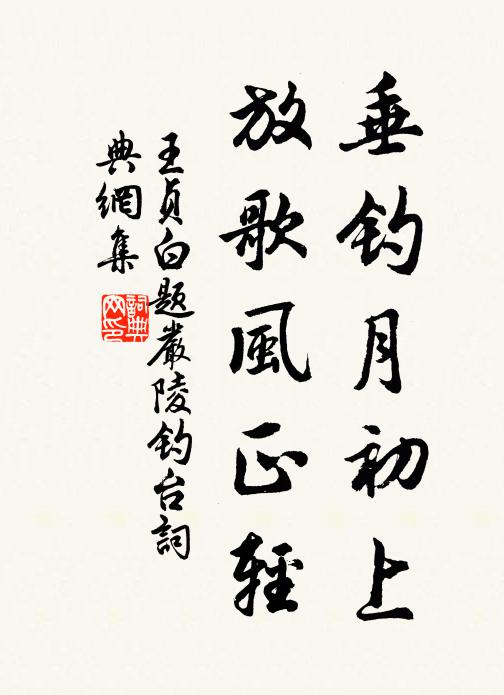 垂钓月初上
放歌風正輕
王貞白題嚴陵钓台詞
典網集
詞典
网印